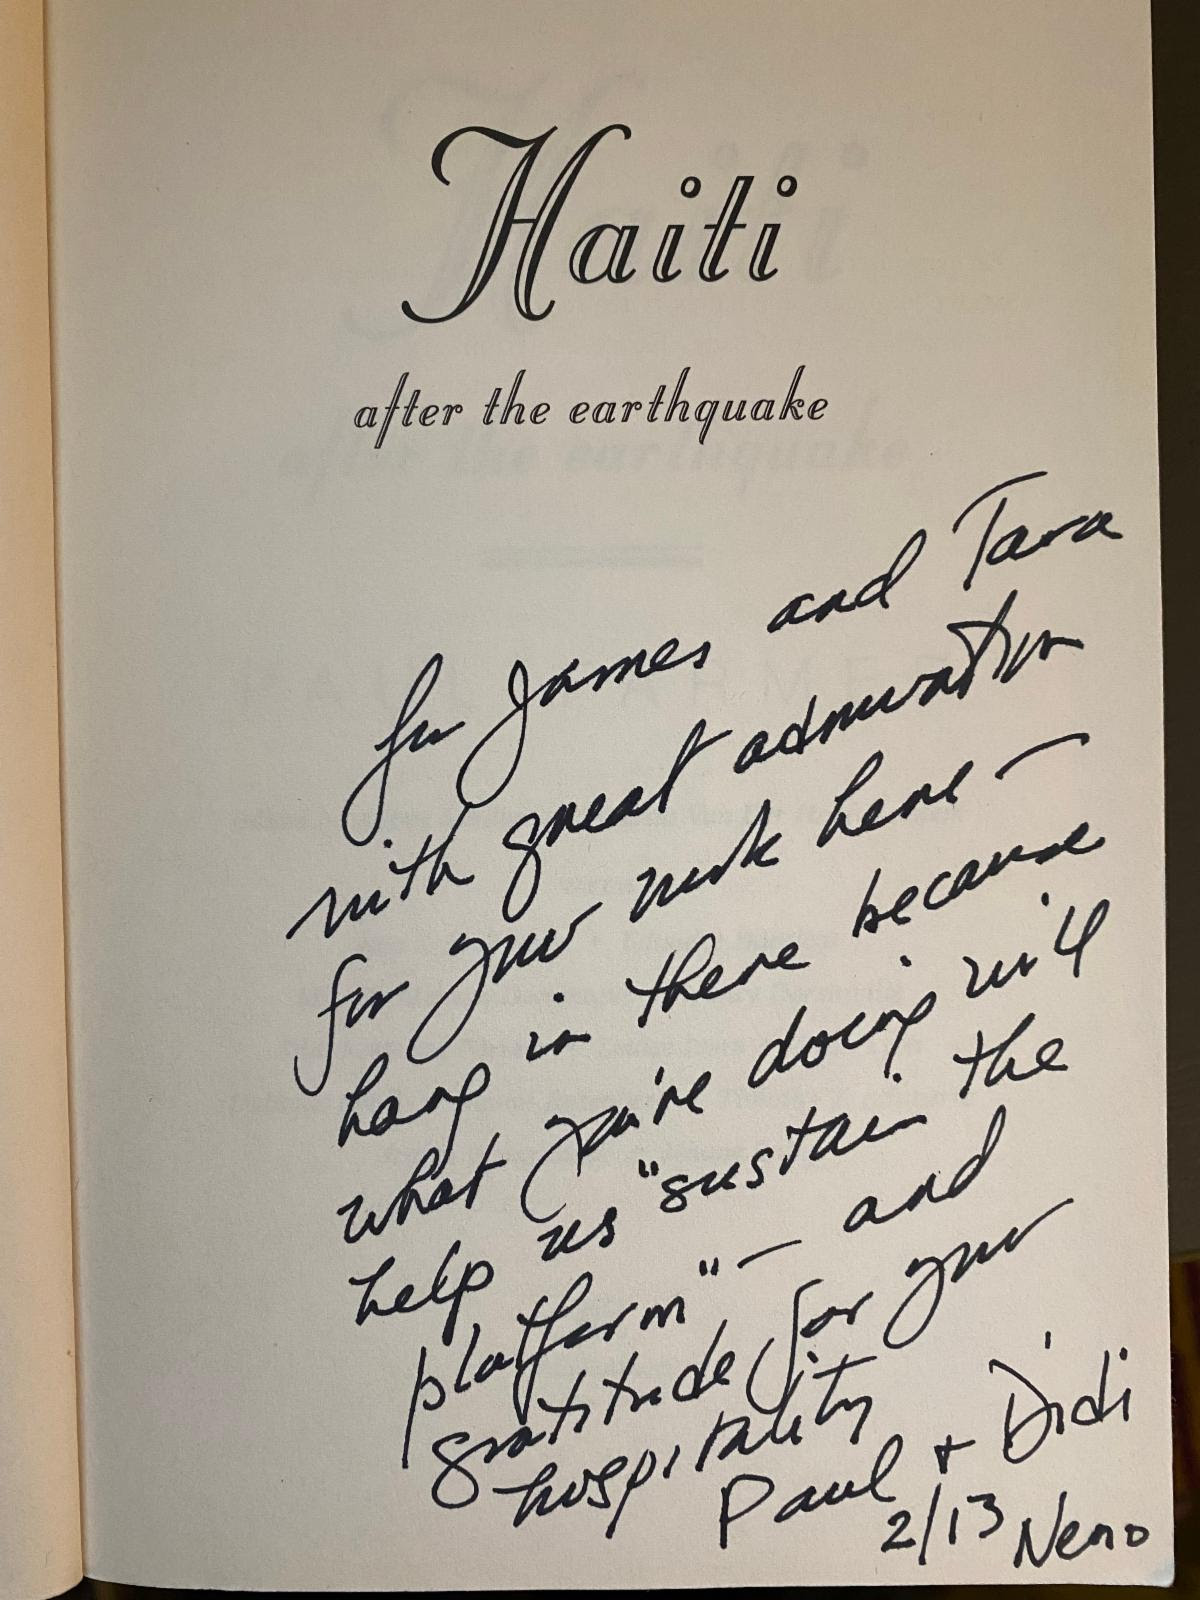 Haiti
after the earthquake
for James and Tara
with great admiration
for your work here –
hang in there because
what you're doing will
help us "sustain the
platform" – and
gratitude for your
hospitality
Paul + Didi
2/13 Nemo